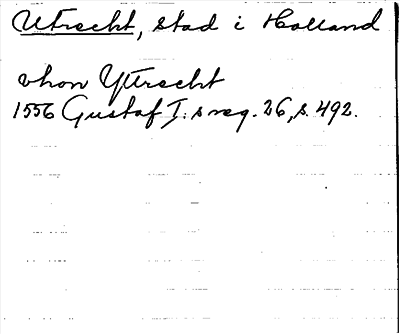 Utrecht, stad i Holland
vhon Yttrecht
1556 Gustaf I:s reg. 26, s. 492.